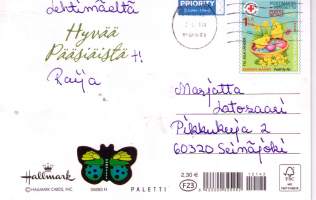 Lehtimäeltä
Hyvää
Pääsiäistä !
Raija
PRIORITY
Marjatta
Latosaari
Pikkukuja 2
60320 Seinäjoki
Hallmark
© HALLMARK CARDS, INC.
PALETTI
2,30 €
F23
FSC